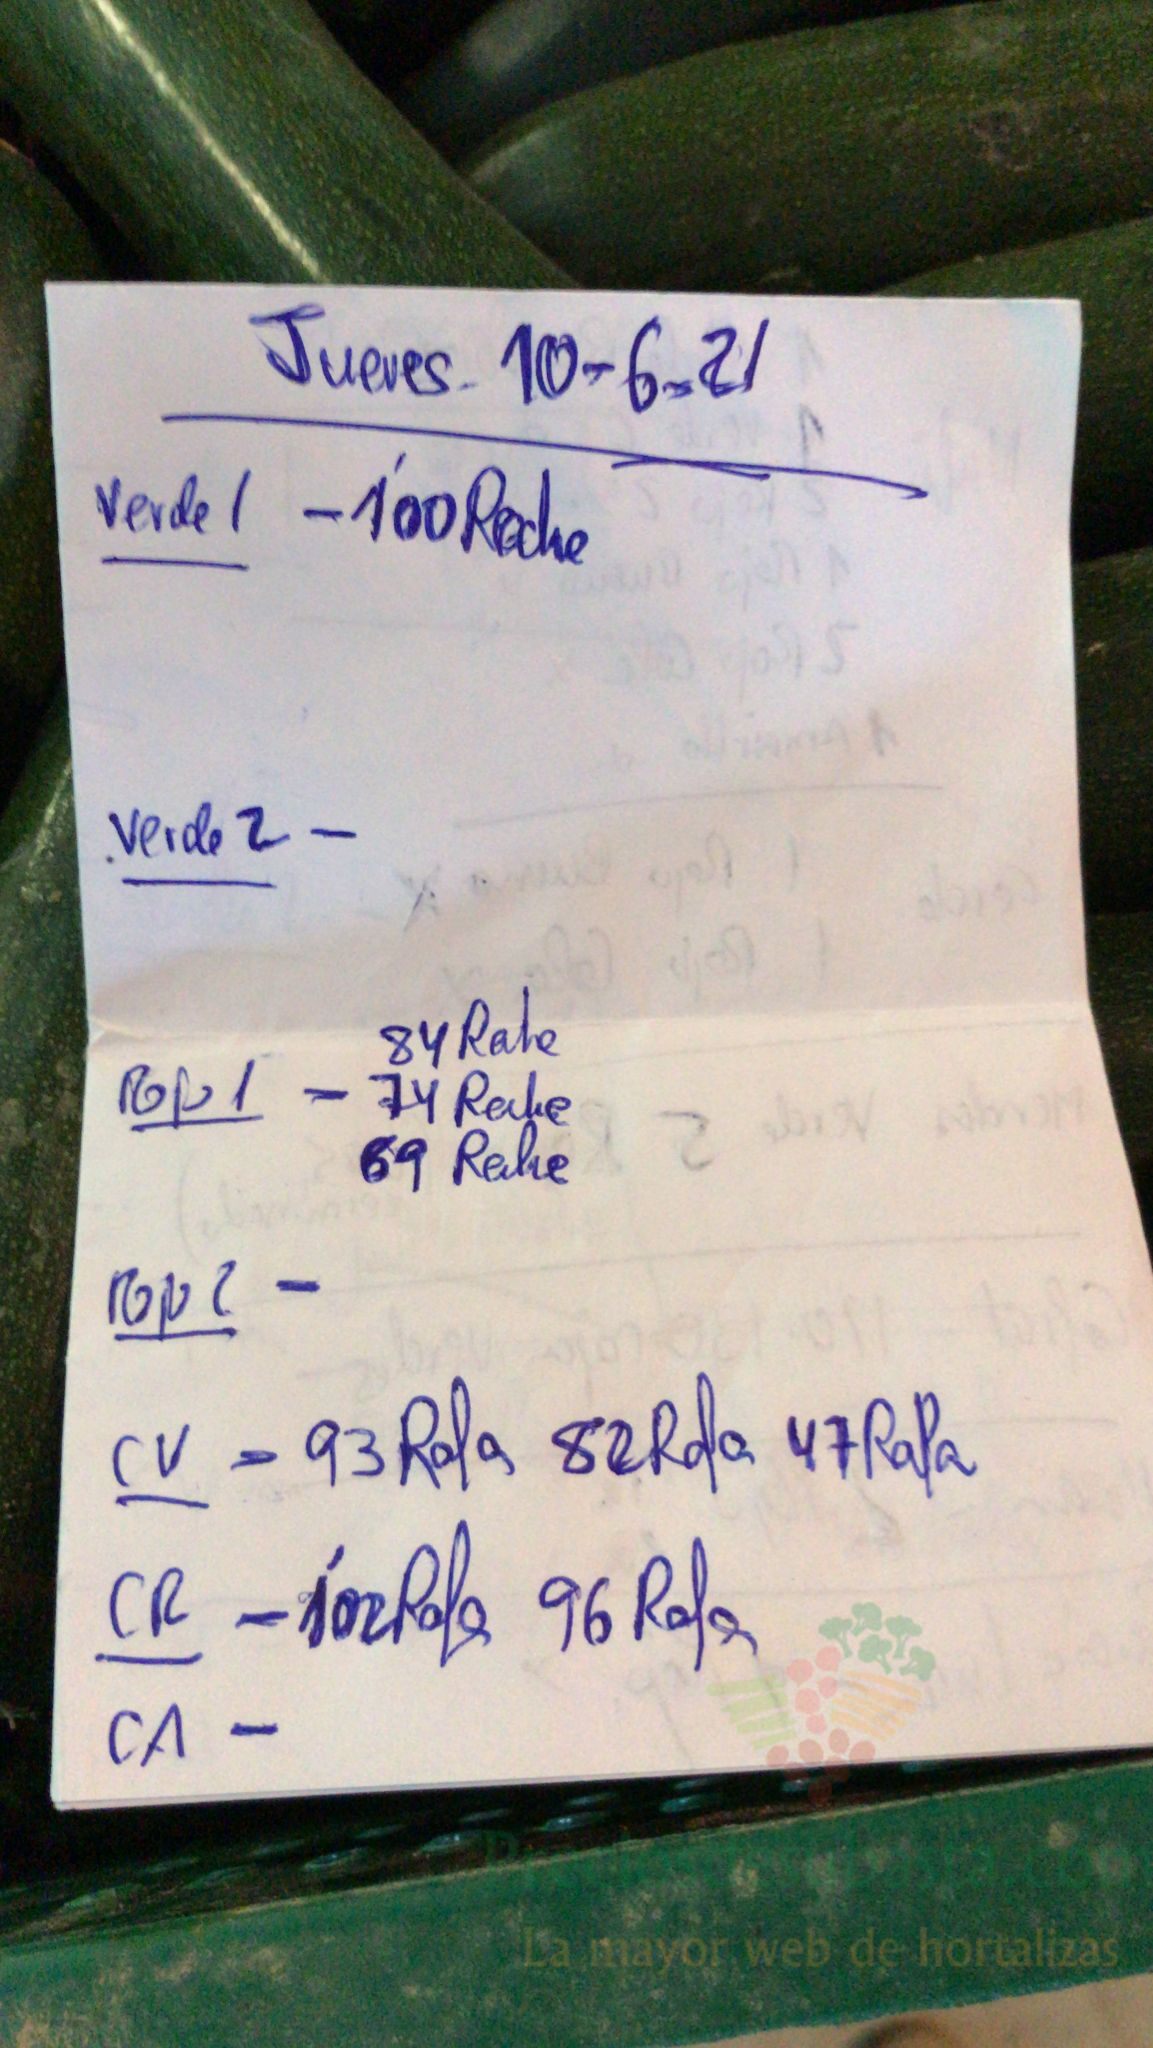 Jueves. 10-6-21
Verde 1 - 100 Roche
Verde 2 -
84 Rahe
Rojo 1 - 74 Rahe
69 Rahe
Rojo 2 -
CV - 93 Rafa 82 Rafa 47 Rafa
CR - 102 Rafa 96 Rafa
CA -
La mayor web de hortalizas